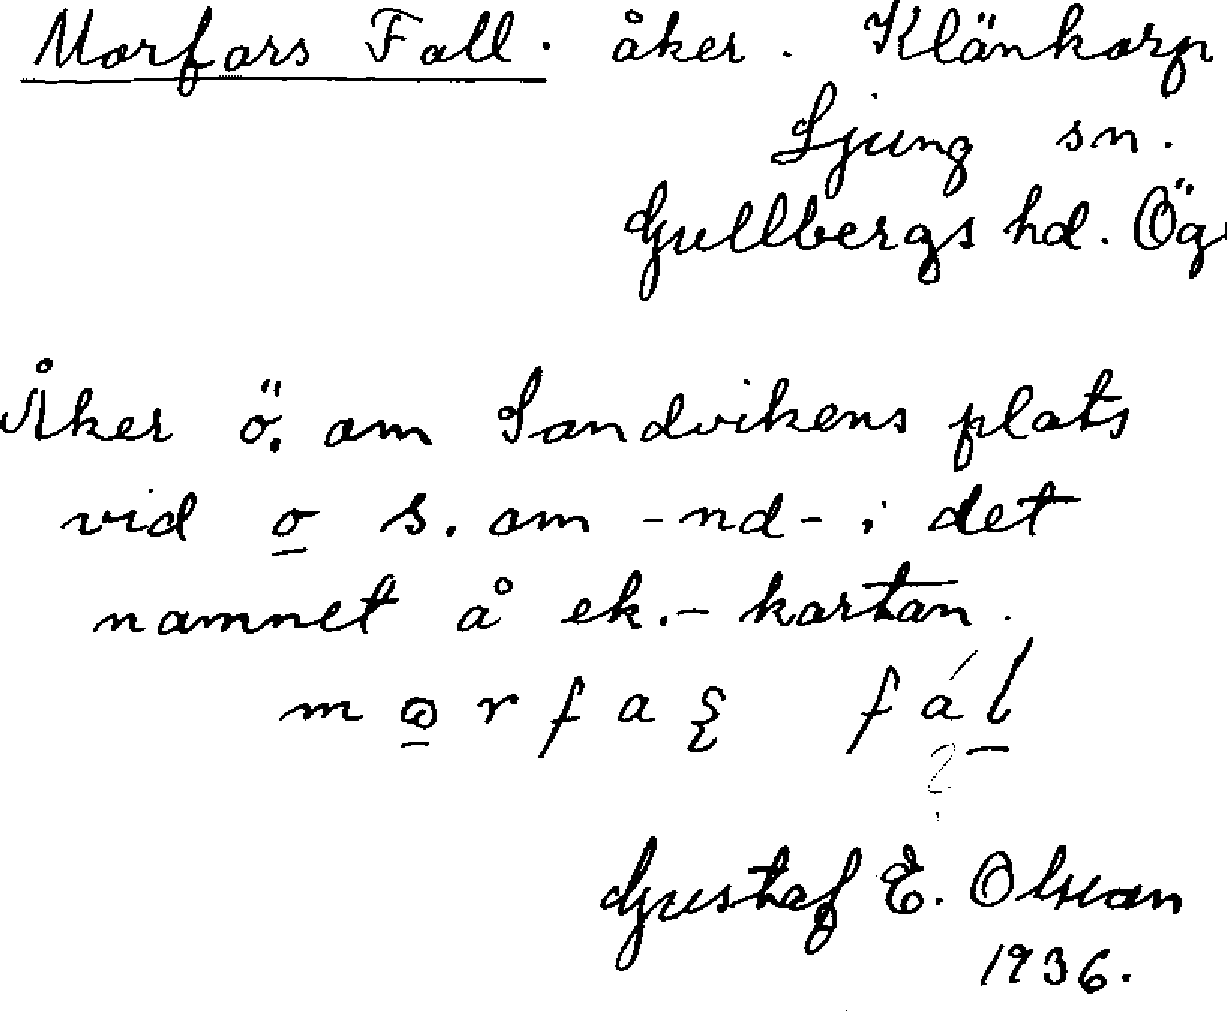 Morfars Fall. åker. Klänkarp
Ljung sn.
Gullbergs hd. Ög.
Åker ö. om Sandvikens plats
vid o s. om -nd- i det
namnet å ek.-kartan.
fál
?
Gustaf E. Olsson
1936.